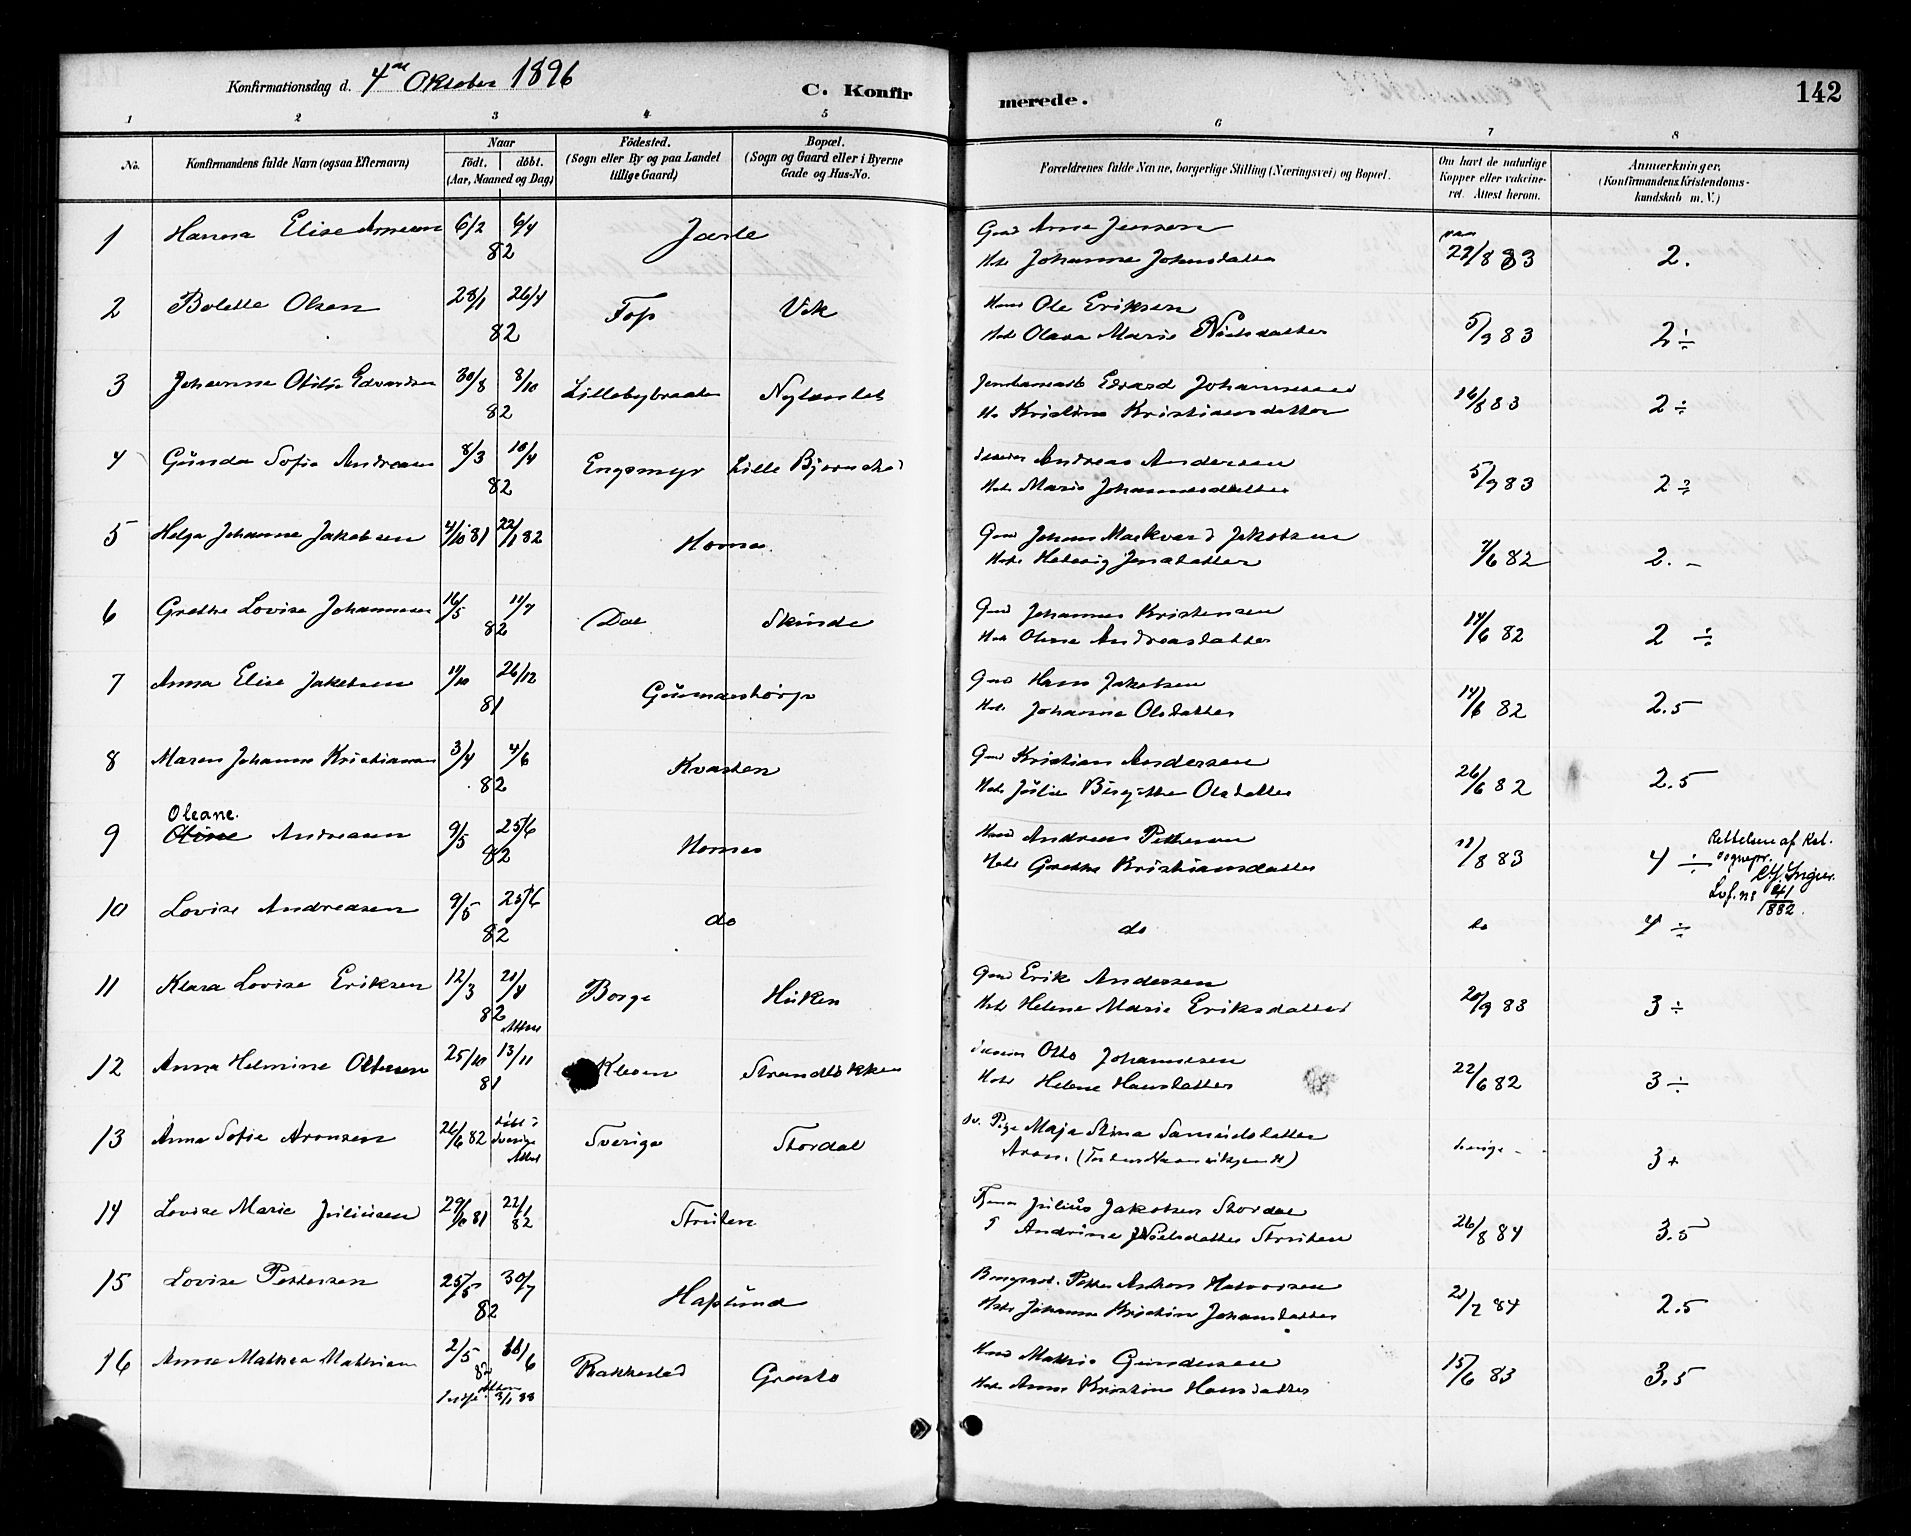 Konfirmationsdag d. 4de Oktober 1896
C. Konfirmerede.
142
1 2 3 4 5 6 7 8
No.
Konfirmandens fulde Navn (ogsaa Efternavn)
Naar
født. døbt.
(Aar, Maaned og Dag)
Födested.
(Sogn eller By og paa Landet
tillige Gaard)
Bopæl.
(Sogn og Gaard eller i Byerne
Gade og Hus-No.
Forældrenes fulde Navne, borgerlige Stilling (Næringsvei) og Bopæl.
Om havt de naturlige
Kopper eller vakcine-
ret. Attest herom.
Anmærkninger.
(Konfirmandens Kristendoms-
kundskab m. V.)
1 Hanna Elise Arnesen 6/2 6/4 82 Jarle Gmd Arne Jensen
Johanne Johansdatter 22/8 83 2.
2 Bolette Olsen 28/1 26/4 82 Top Vik Ole Eriksen
Olava Marie Nielsdatter 5/9 83 2 ÷
3 Johanne Otilie Edvardsen 30/8 8/10 82 Lillebybraaten Edvard Johannesen
Kristine Kristiansdatter 16/8 83 2 ÷
4 Gunda Sofie Andreasen 8/3 10/4 82 Engsmyr Lille Andreas Andersen
Marie Johannesdatter 5/9 83 2 ÷
5 Helga Johanne Jakobsen 4/10 81 22/1 82 Hornes Gmd Johan Jakobsen
Hedevig Jensdatter 7/6 82 2. -
6 Grethe Lovise Johannesen 16/5 11/7 82 Dal Skinde Gmd Johannes Kristensen
Oline Andreasdatter 14/6 82 2 ÷
7 Anna Elise Jakobsen 11/10 26/12 81 Gunnarstorp Gmd Hans Jakobsen
Johanne Olsdatter 14/6 82 2.5
8 Maren Johanne Kristiansen 3/4 4/6 82 Kvasten Gmd Kristian Andersen
Julie Birgitte Olsdatter 26/6 82 2.5
9 Oleane. Oline Andreasen 9/5 25/6 82 Hornes Andreas Pettersen
Grethe Kristiansdatter 11/8 83 4 ÷
Rettelsen af Res.
sognepr.
1882.
10 Lovise Andreasen 9/5 25/6 82 do do do 4 ÷
11 Klara Lovise Eriksen 12/3 82 Attest Borge Huken Gmd Erik Andersen
Helene Marie Eriksdatter 20/9 83 3 ÷
12 Anna Helmine Ottesen 25/10 13/11 81 Strandløkken Otto Johannesen
Helene Hansdatter 22/6 82 3 ÷
13 Anna Sofie Aronsen 26/6 82 døbt i Sverige Attest Sverige Stordal Pige Maja Stina
Aron. 3 +
14 Lovise Marie Juliusen 29/10 81 22/1 82 Struten Julius Jakobsen Stordal
Andrine Nielsdatter Struten 26/8 84 3.5
15 Lovise Pettersen 25/5 30/7 82 Haslund Petter Anton Halvorsen
Johanne Kristine Johansdatter 21/7 84 2.5
16 Anne Mathea Mathisen 2/5 82 Rakkestad Mathis Gundersen
Anne Kristine Hansdatter 15/6 83 3.5